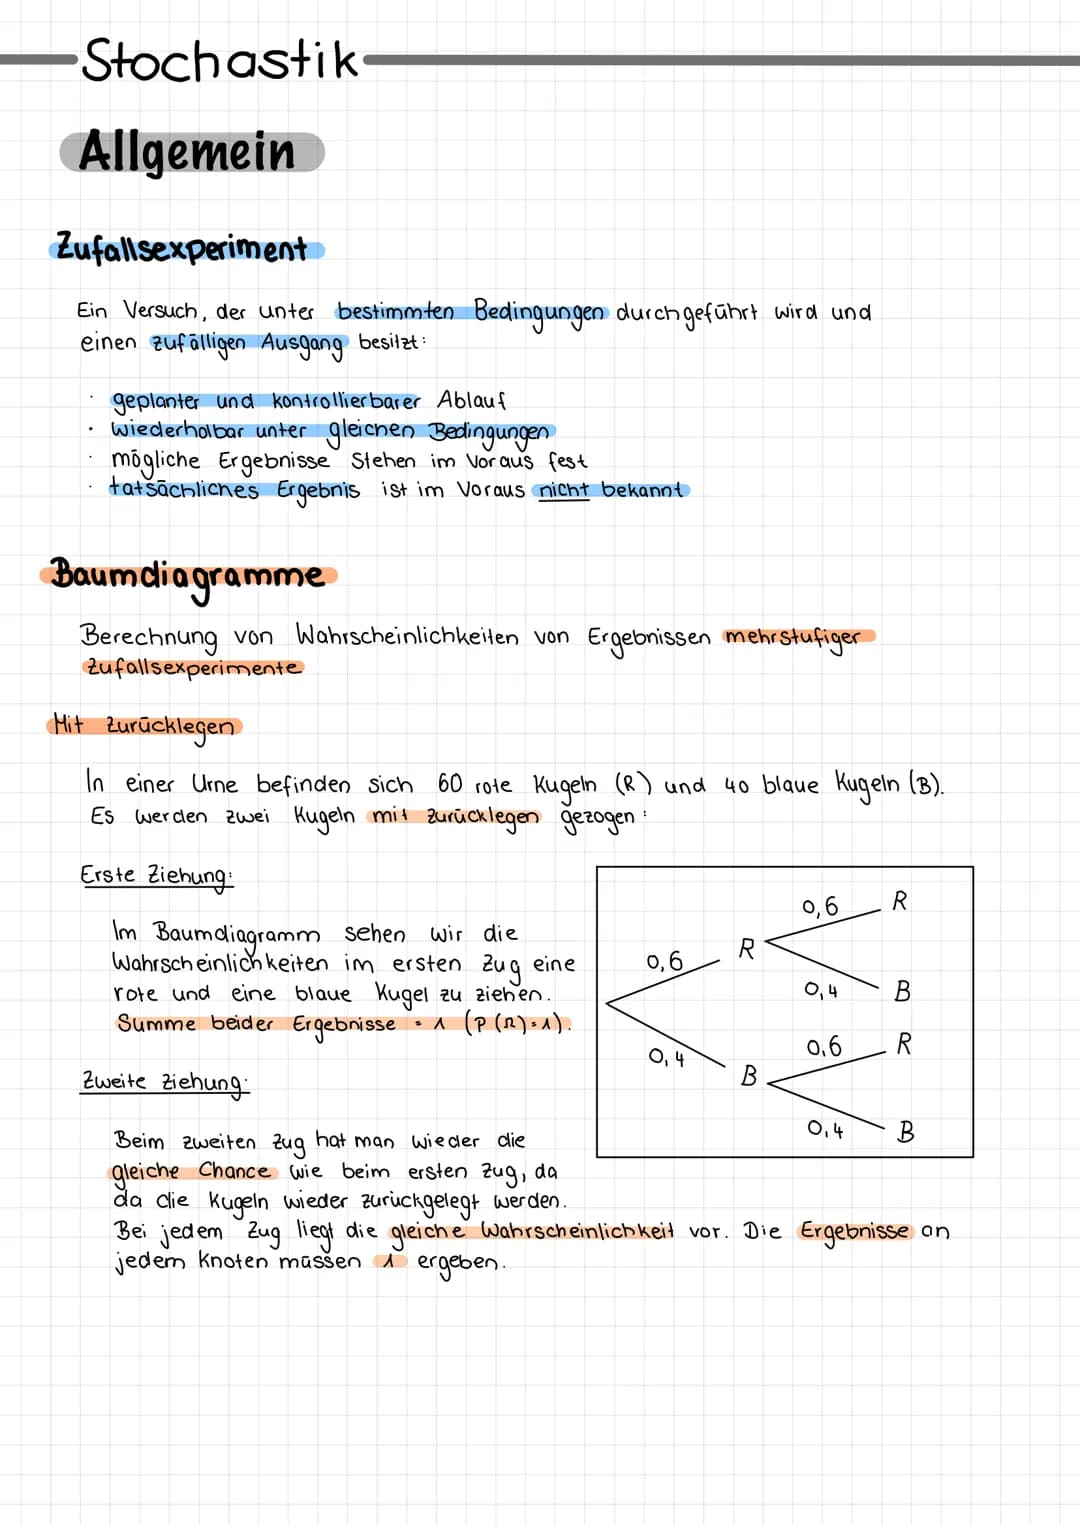 Stochastik
Allgemein
Zufallsexperiment
Ein Versuch, der unter bestimmten Bedingungen durchgeführt wird und
einen zufälligen Ausgang besitzt:
· geplanter und kontrollierbarer Ablauf
· wiederholbar unter gleichen Bedingungen
· mögliche Ergebnisse stehen im Voraus fest
· tatsächliches Ergebnis ist im Voraus nicht bekannt
Baumdiagramme
Berechnung von Wahrscheinlichkeiten von Ergebnissen mehrstufiger
Zufallsexperimente
Mit Zurücklegen
In einer Urne befinden sich 60 rote Kugeln (R) und 40 blaue Kugeln (B).
Es werden zwei Kugeln mit zurücklegen gezogen:
Erste Ziehung:
Im Baumdiagramm sehen wir die
Wahrscheinlichkeiten im ersten Zug eine
rote und eine blaue Kugel zu ziehen.
Summe beider Ergebnisse = 1 (P(Ω)=1).
Zweite Ziehung:
Beim zweiten Zug hat man wieder die
gleiche Chance wie beim ersten Zug, da
da die Kugeln wieder zurückgelegt werden.
Bei jedem Zug liegt die gleiche Wahrscheinlichkeit vor. Die Ergebnisse an
jedem Knoten müssen 1 ergeben.
0,6 R
0,6 R
0,4 B
0,6 R
0,4 B
0,4 B